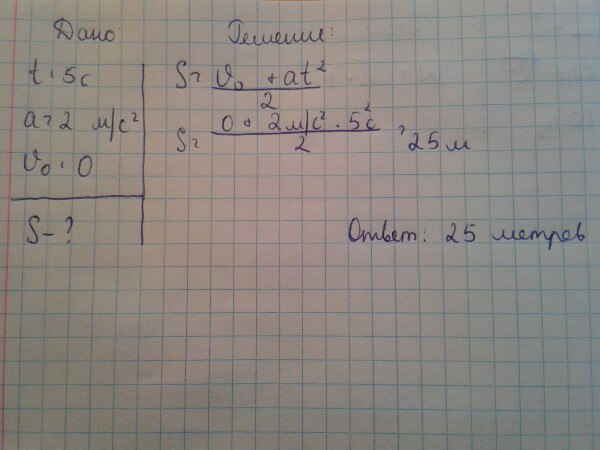 Дано
t = 5с
a = 2 м/с²
V₀ = 0
S - ?
Решение:
S = (V₀ + at²)/2
S = (0 + 2м/с² · 5²с)/2 = 25 м
Ответ: 25 метров